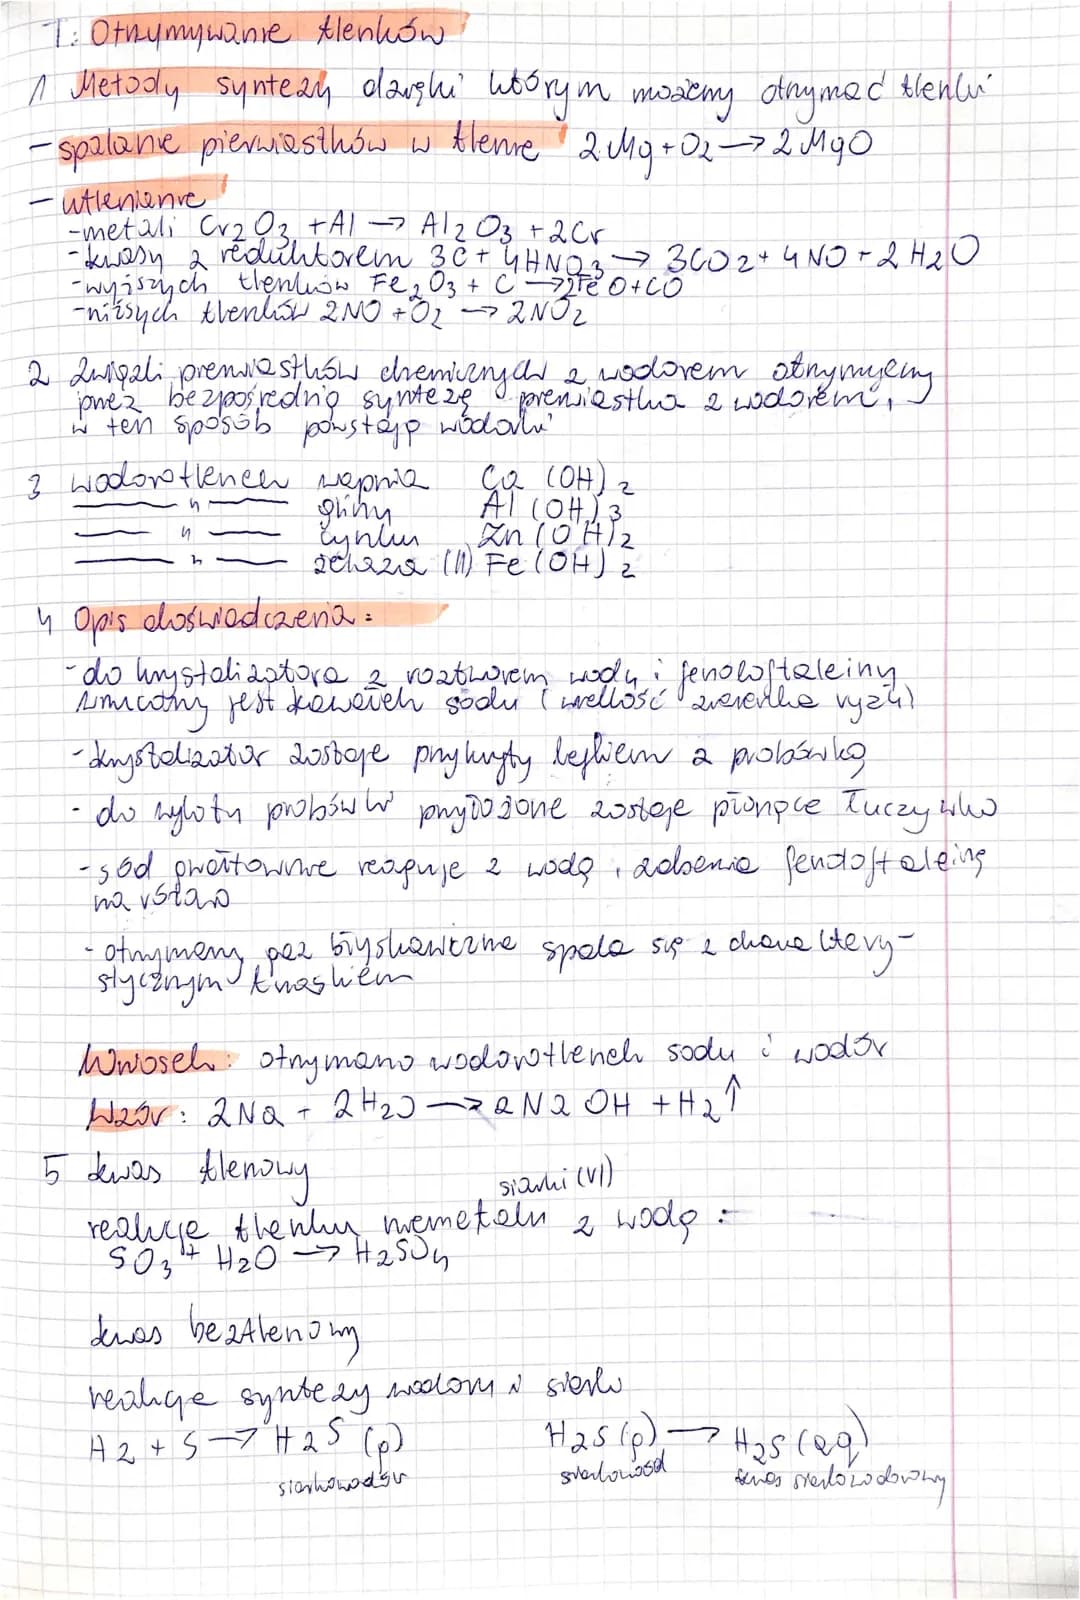 T: Otrzymywanie tlenków
1 Metody syntezy dzięki którym możemy otrzymać tlenki
- spalanie pierwiastków w tlenie 2Mg+O2→2MgO
- utlenianie
-metali Cr2O3 +Al → Al2O3 +2Cr
-kwasy z reduktorem 3C+ 4HNO3→ 3CO2+ 4NO + 2H2O
-wyższych tlenków Fe2O3 + C →2FeO+CO
-niższych tlenków 2NO +O2 → 2NO2
2 Związki pierwiastków chemicznych z wodorem otrzymujemy
przez bezpośrednią syntezę pierwiastka z wodorem,
w ten sposób powstają wodorki
3 wodorotlenek wapnia Ca (OH)2
—— 〃 —— gliny Al (OH)3
—— 〃 —— cynku Zn (OH)2
—— 〃 —— żelaza (II) Fe (OH)2
4 Opis doświadczenia:
-do krystalizatora z roztworem wody i fenoloftaleiny
wrzucony jest kawałek sodu (wielkość ziarenka ryżu)
-krystalizator zostaje przykryty lejkiem z probówką
- do wylotu probówki przyłożone zostaje płonące łuczywko
-sód gwałtownie reaguje z wodą, zabarwia fenoloftaleinę
na różowo
- otrzymany gaz błyskawicznie spala się z charaktery-
stycznym trzaskiem
Wniosek: otrzymano wodorotlenek sodu i wodór
Wzór: 2Na + 2H2O → 2NaOH +H2↑
5 kwas tlenowy
siarki (VI)
reakcje tlenku niemetalu z wodą :
SO3+ H2O → H2SO4
kwas beztlenowy
reakcje syntezy wodoru i siarki
H2 + S → H2S (p) H2S (p) → H2S (aq)
siarkowodór siarkowod kwas siarkowodorowy